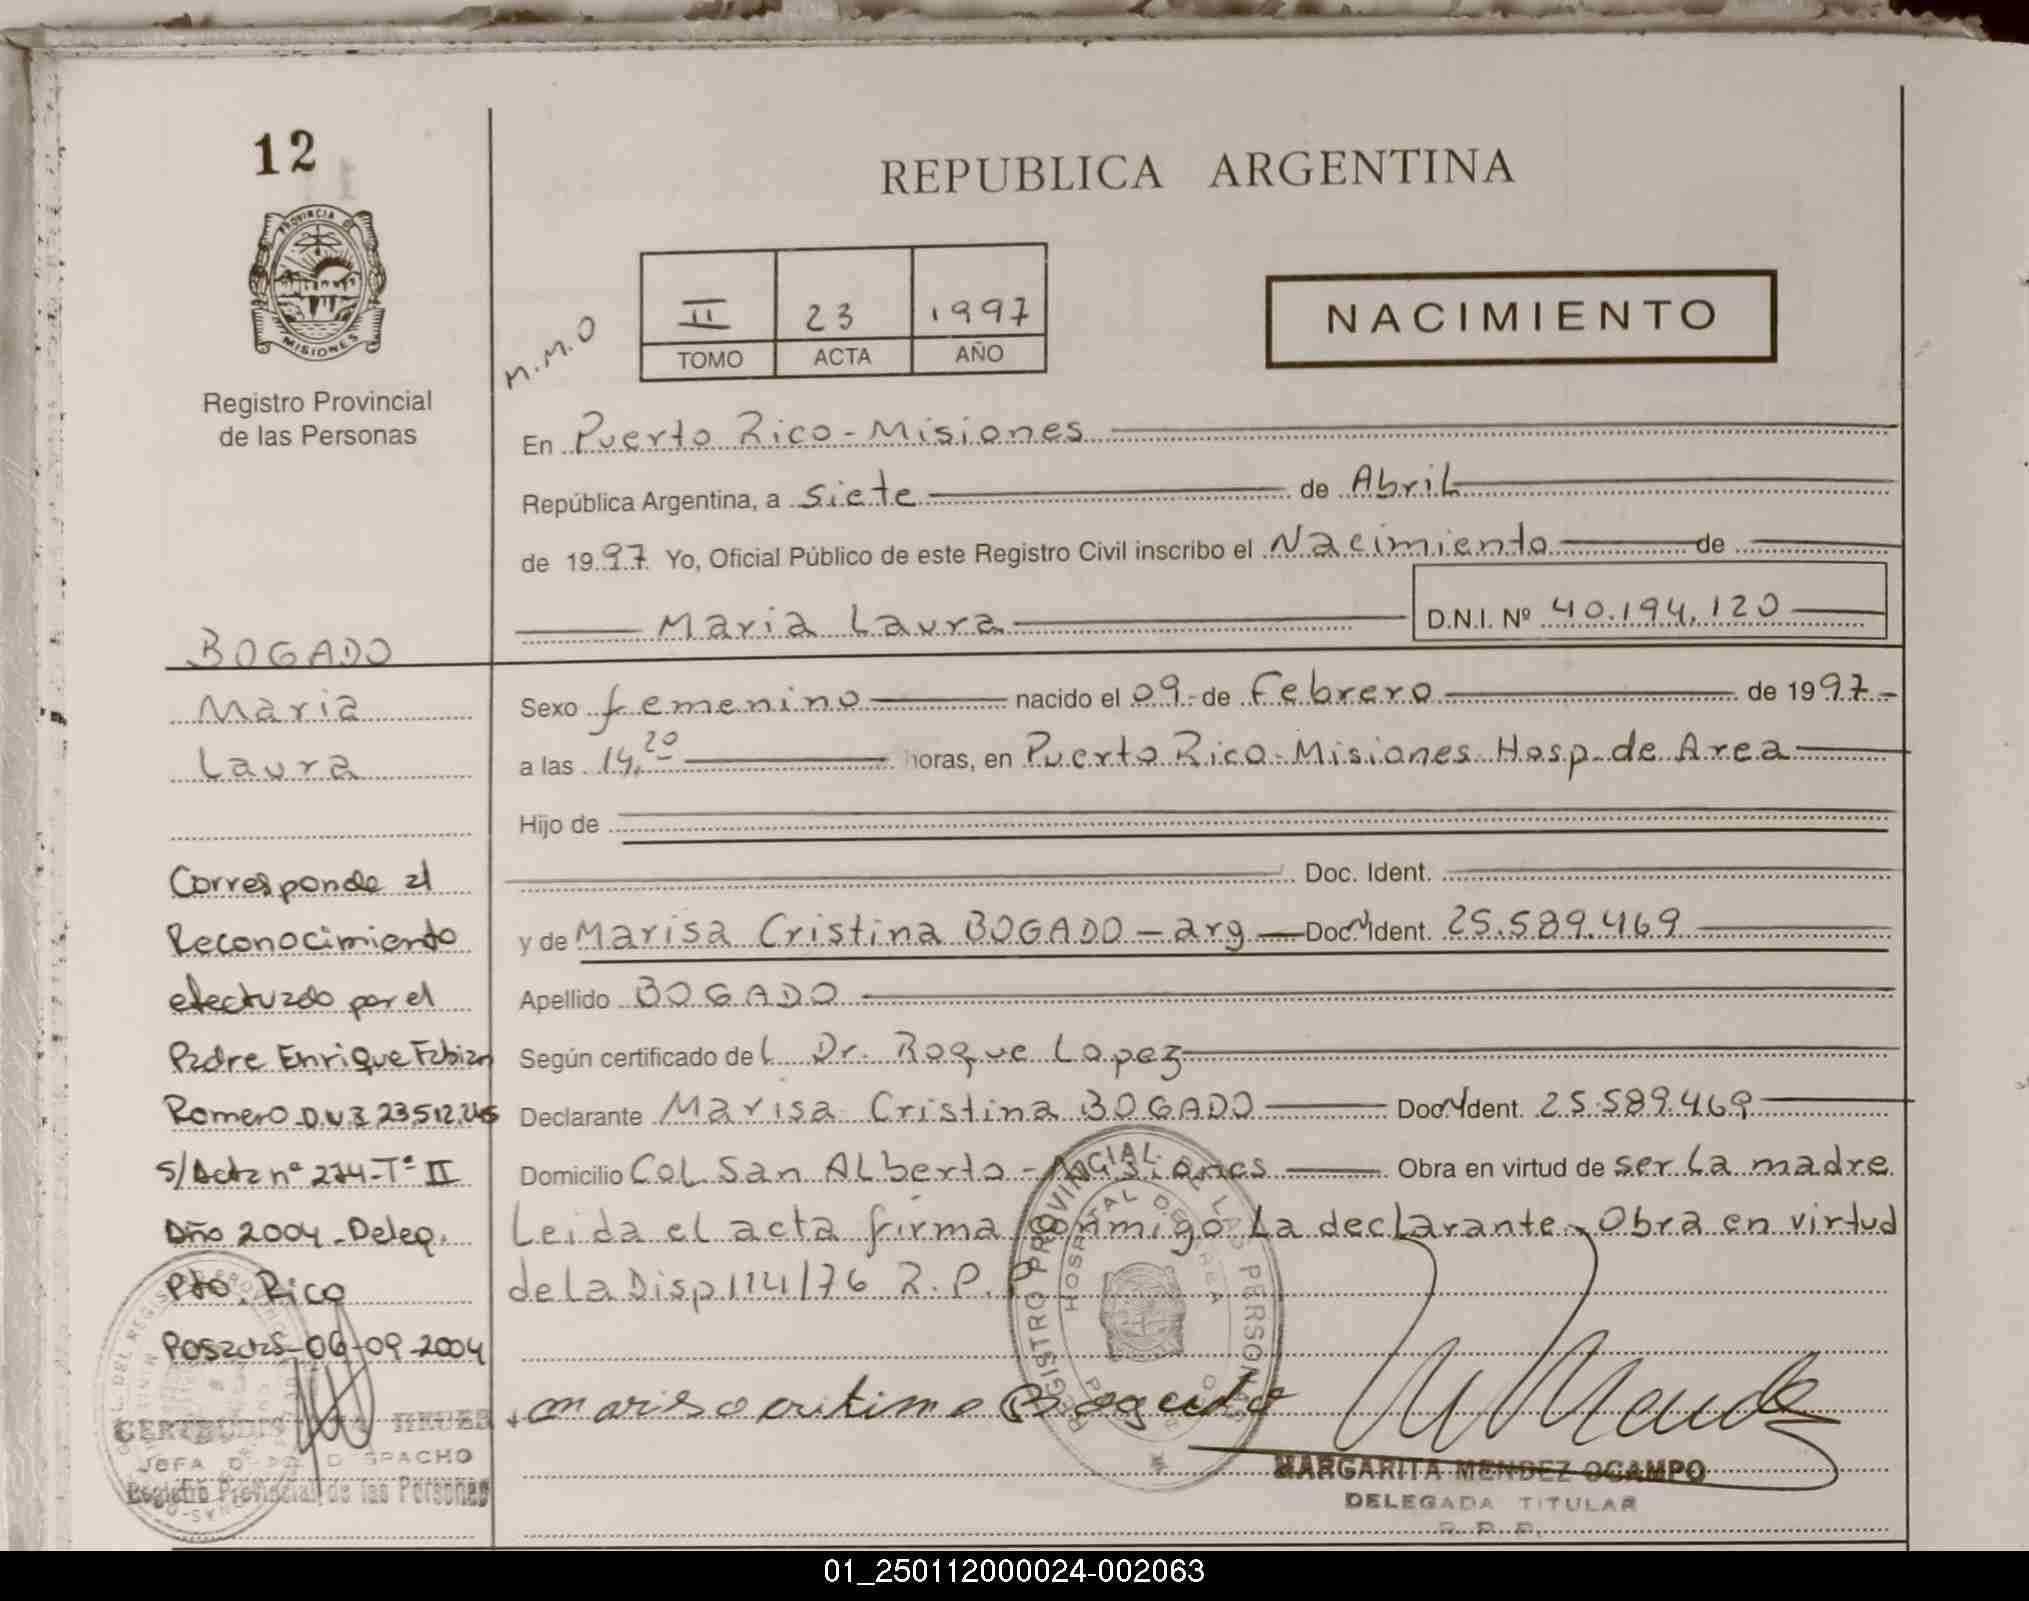 12
PROVINCIA
MISIONES
Registro Provincial
de las Personas
REPUBLICA ARGENTINA
M.M.O
II 23 1997
TOMO ACTA AÑO
NACIMIENTO
En Puerto Rico - Misiones
República Argentina, a siete de Abril
de 1997 Yo, Oficial Público de este Registro Civil inscribo el Nacimiento de
Maria Laura D.N.I. Nº 40.194.120
Sexo femenino nacido el 09 de Febrero de 1997
a las 14,20 horas, en Puerto Rico - Misiones Hosp. de Area
Hijo de
Doc. Ident.
y de Marisa Cristina BOGADO - arg Doc. Ident. 25.589.469
Apellido BOGADO
Según certificado del Dr. Roque Lopez
Declarante Marisa Cristina BOGADO Doc. Ident. 25.589.469
Domicilio Col San Alberto - Misiones Obra en virtud de ser la madre
Leida el acta firma conmigo la declarante, Obra en virtud
de la Disp 114/76 R.P.P
marisa cristina Bogado
REGISTRO PROVINCIAL DE LAS PERSONAS
HOSPITAL DE AREA
MARGARITA MENDEZ OCAMPO
DELEGADA TITULAR
R. P. P.
BOGADO
Maria
Laura
Corresponde al
Reconocimiento
efectuado por el
Padre Enrique Fabian
Romero D.N.I 23.512.
s/Acta nº 274-Tº II
Año 2004 - Deleg.
Pto. Rico
Posadas-06-09-2004
GERTRUDIS
JEFA
Registro Provincial de las Personas
01_250112000024-002063